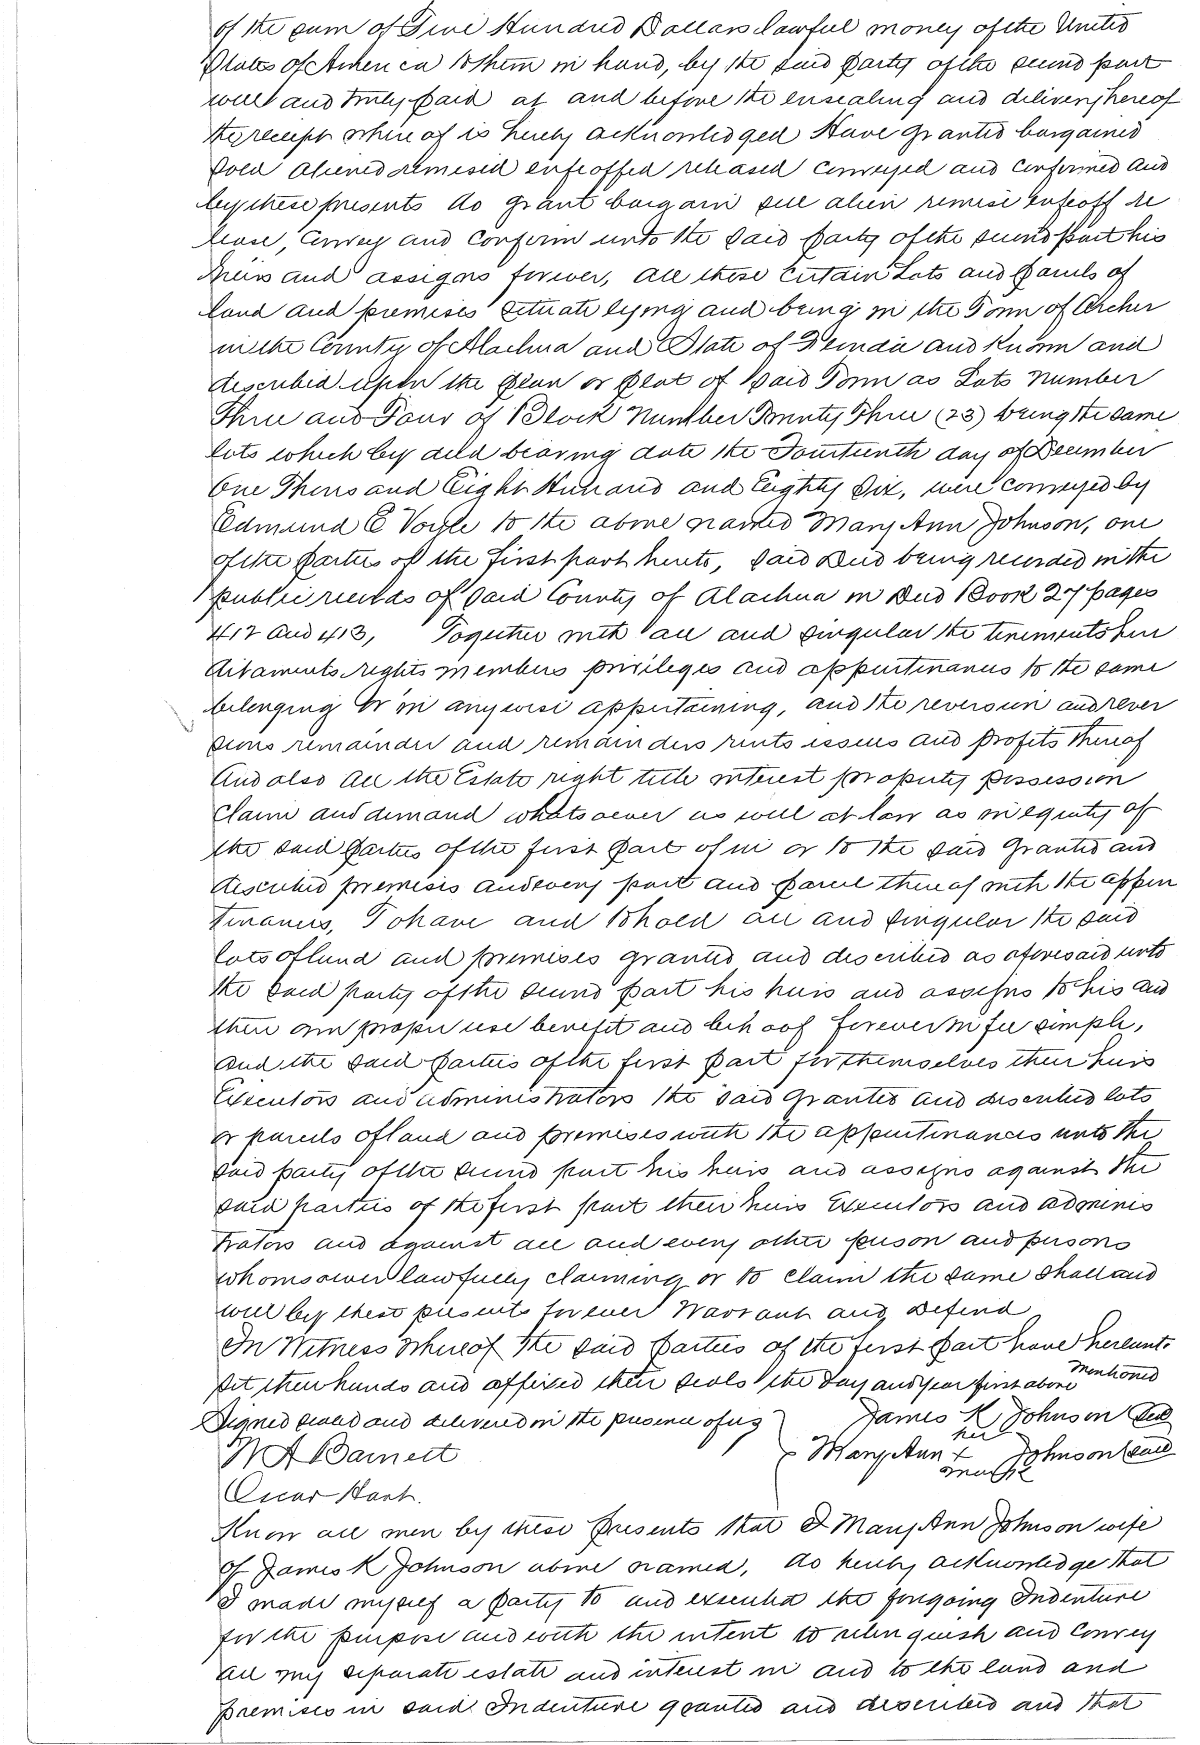 of the sum of Five Hundred Dollars lawful money of the United
States of America to them in hand, by the said party of the second part
well and truly paid at and before the ensealing and delivery hereof
the receipt where of is hereby acknowledged Have granted bargained
sold aliened remised enfeoffed released conveyed and confirmed and
by these presents do grant bargain sell alien remise enfeoff re
lease, Convey and Confirm unto the said party of the second part his
heirs and assigns forever, all those certain Lots and parcels of
land and premises situate lying and being in the Town of Archer
in the County of Alachua and State of Florida and known and
described upon the plan or plat of said Town as Lots number
Three and Four of Block Number Twenty Three (23) being the same
lots which by deed bearing date the Fourteenth day of December
One Thousand Eight Hundred and Eighty Six, were conveyed by
Edmund E Voyle to the above named Mary Ann Johnson, one
of the parties of the first part hereto, said Deed being recorded in the
public records of said County of Alachua in Deed Book 27 pages
412 and 413, Together with all and singular the tenements her
ditaments rights members privileges and appurtenances to the same
belonging or in any wise appertaining, and the reversion and rever
sions remainder and remainders rents issues and profits thereof
And also all the Estate right title interest property possession
Claim and demand whatsoever as well at law as in equity of
the said parties of the first part of in or to the said granted and
described premises and every part and parcel there of with the appur
tenances, To have and to hold all and singular the said
lots of land and premises granted and described as aforesaid unto
the said party of the second part his heirs and assigns to his and
their own proper use benefit and behoof forever in fee simple,
And the said parties of the first part for themselves their heirs
Executors and administrators the said granted and described lots
or parcels of land and premises with the appurtenances unto the
said party of the second part his heirs and assigns against the
said parties of the first part their heirs Executors and adminis
trators and against all and every other person and persons
whomsoever lawfully claiming or to claim the same shall and
will by these presents forever Warrant and Defend
In Witness Whereof the said parties of the first part have hereunto
set their hands and affixed their seals the day and year first above mentioned
Signed sealed and delivered in the presence of us James K Johnson Seal
W A Barnett Mary Ann her x mark Johnson Seal
Oscar Hart.
Know all men by these presents that I Mary Ann Johnson wife
of James K Johnson above named, do hereby acknowledge that
I made myself a party to and executed the foregoing Indenture
for the purpose and with the intent to relinquish and convey
all my separate estate and interest in and to the land and
premises in said Indenture granted and described and that